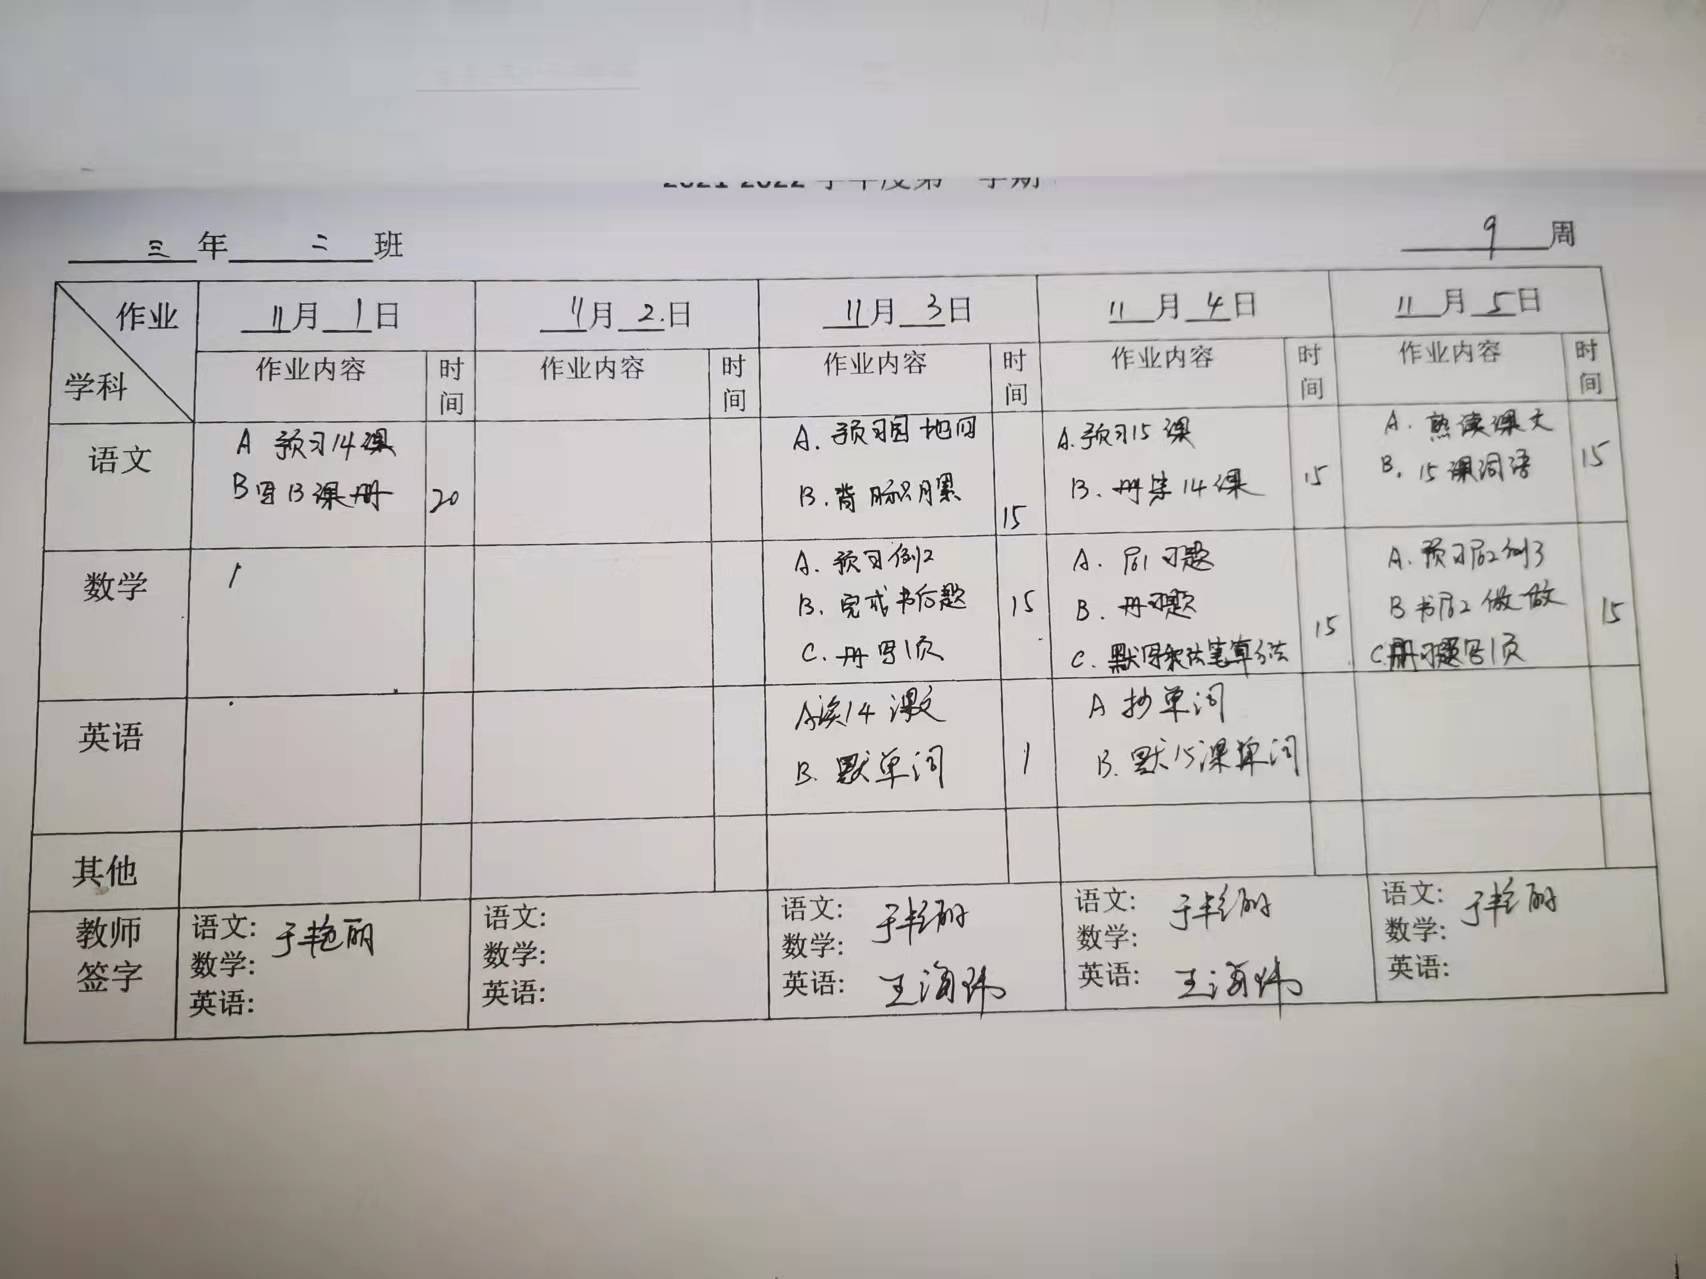 2021-2022学年度第一学期
三年二班
9周
作业
学科
11月1日
11月2日
11月3日
11月4日
11月5日
作业内容 时间
作业内容 时间
作业内容 时间
作业内容 时间
作业内容 时间
语文
A 预习14课
B 写13课册
20
A. 预习园地四
B. 背 累
15
A. 预习15课
B. 册 14课
15
A. 熟读课文
B. 15课词语
15
数学
A. 预习例2
B. 完成书后题
C. 册写1页
15
A. 习题
B. 册习题
C. 默写 笔算
15
A. 预习 例3
B 书 做一做
C. 册习题写1页
15
英语
A 读14课文
B. 默单词
1
A 抄单词
B. 默15课单词
其他
教师
签字
语文: 于艳丽
数学:
英语:
语文:
数学:
英语:
语文: 于艳丽
数学:
英语: 王海炜
语文: 于艳丽
数学:
英语: 王海炜
语文: 于艳丽
数学:
英语: